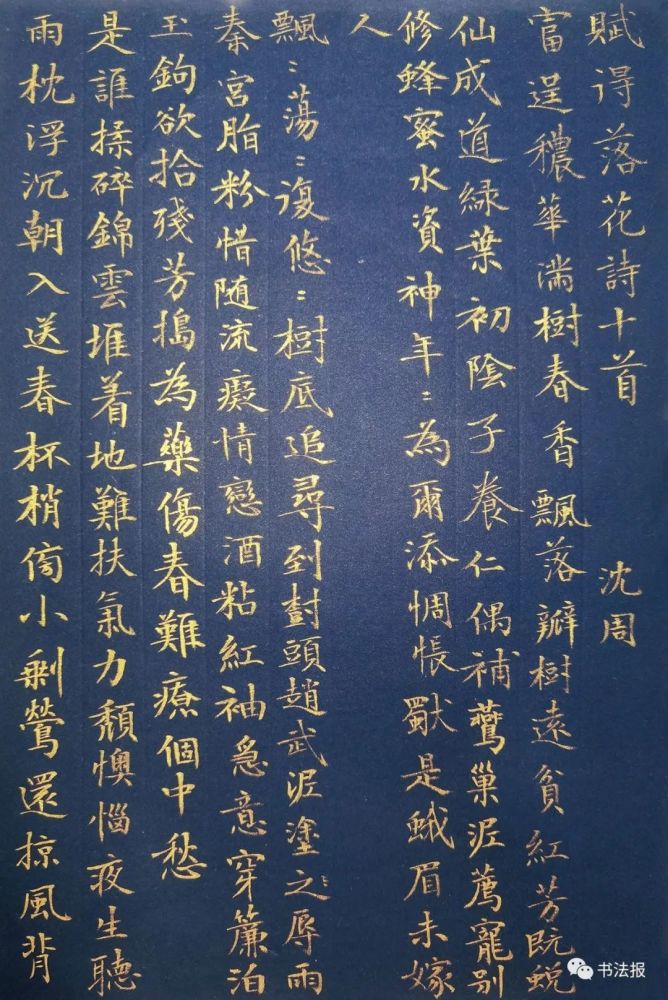 賦得落花詩十首 沈周
富逞穠華滿樹春香飄落瓣樹遠貧紅芳既蛻
仙成道綠葉初陰子養仁偶補鶯巢泥薦寵別
修蜂蜜水資神年〻為爾添惆悵獸是蛾眉未嫁
人
飄〻蕩〻復悠〻樹底追尋到樹頭趙武泥塗之辱雨
秦宮脂粉惜随流癡情戀酒粘紅袖急意穿簾泊
玉鉤欲拾殘芳搗為藥傷春難療個中愁
是誰揉碎錦雲堆着地難扶氣力頹懊惱夜生聽
雨枕浮沉朝入送春杯梢傍小剩鶯還掠風背
书法报